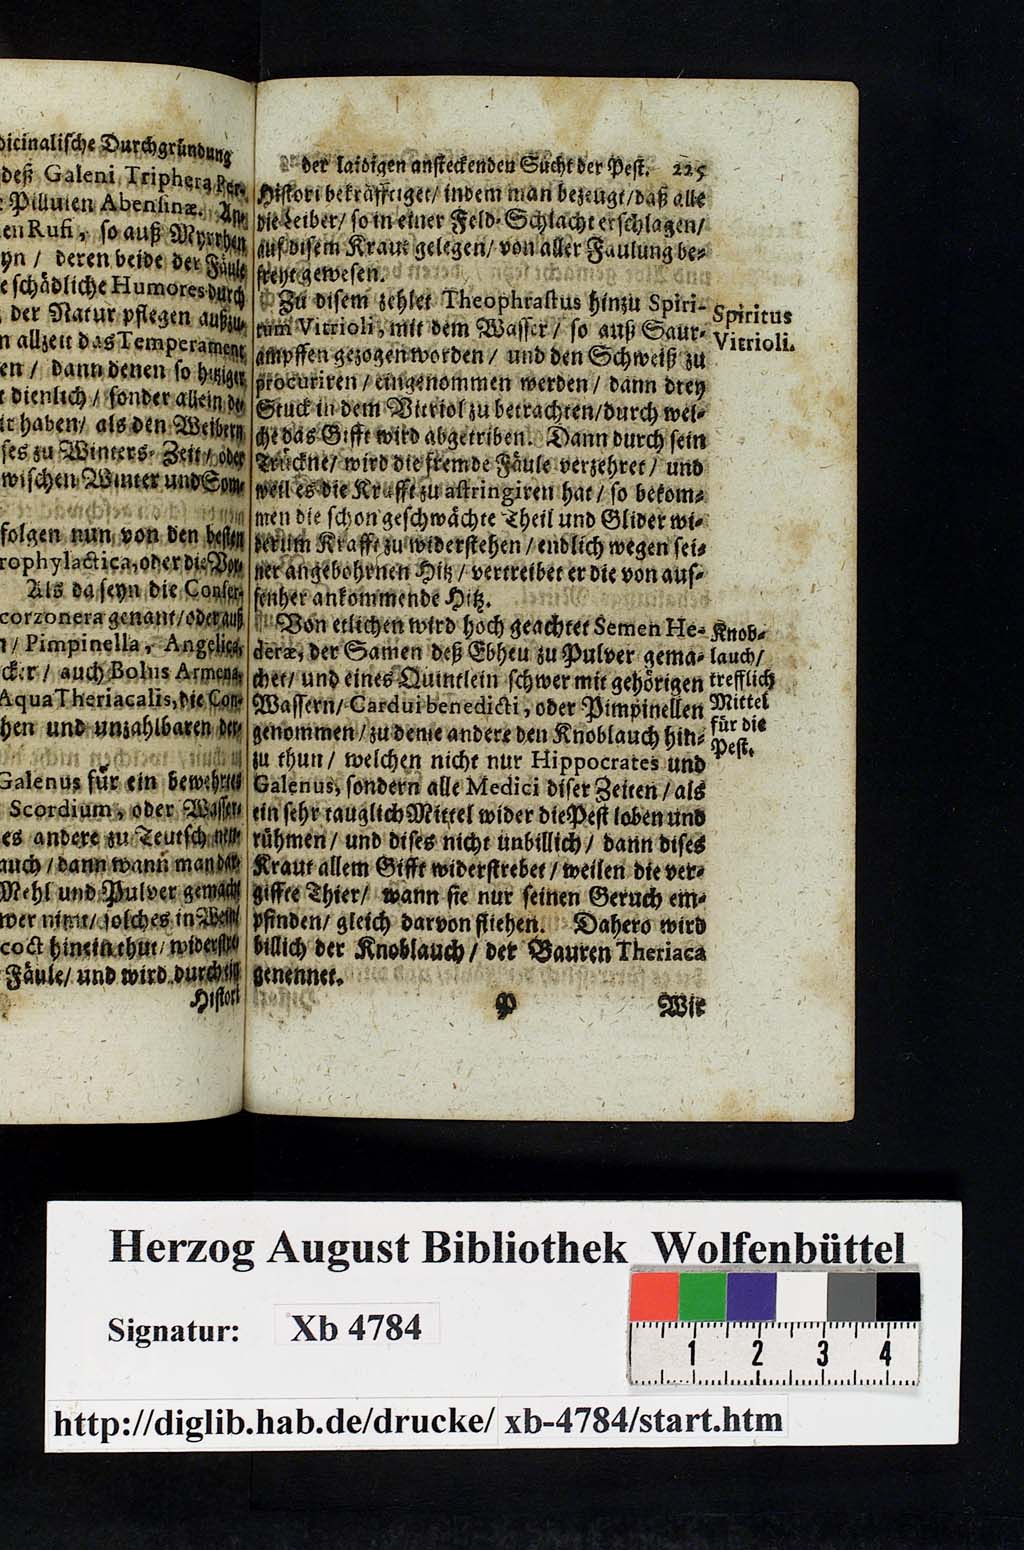 dicinalische Durchgründung
deß Galeni Triphera Per-
Pillulen Abensinæ.
en Rufi, so auß Myrrhen
yn / deren beide der Fäule
e schädliche Humores durch
der Natur pflegen außzu-
n allzeit das Temperament
en / dann denen so hitziger
t dienlich / sonder allein de-
it haben / als den Weibern
ses zu Winters-Zeit / oder
wischen Winter und Som-
folgen nun von den besten
rophylactica, oder die Vor-
Als da seyn die Conser-
corzonera genant / oder auß
n / Pimpinella, Angelica,
cker / auch Bolus Armena,
Aqua Theriacalis, die Con-
hen und unzahlbaren der-
Galenus für ein bewehrtes
Scordium, oder Wasser-
es andere zu Teutsch nen-
auch / dann wann man dar-
Mehl und Pulver gemacht
wer nimt / solches in
coct hinein thut / widerstreb
Fäule / und wird durch ein
Histori
der laidigen ansteckenden Sucht der Pest. 225
Histori bekräfftiget / indem man bezeugt / daß alle
die Leiber / so in einer Feld-Schlacht erschlagen /
auf disem Kraut gelegen / von aller Faulung be-
freyt gewesen.
Zu disem zehlet Theophrastus hinzu Spiri-
tum Vitrioli, mit dem Wasser / so auß Saur-
ampffen gezogen worden / und den Schweiß zu
procuriren / eingenommen werden / dann drey
Stuck in dem Vitriol zu betrachten / durch wel-
che das Gifft wird abgetriben. Dann durch sein
Trückne / wird die fremde Fäule verzehret / und
weil es die Krafft zu astringiren hat / so bekom-
men die schon geschwächte Theil und Glider wi-
derum Krafft zu widerstehen / endlich wegen sei-
ner angebohrnen Hitz / vertreibet er die von aus-
senher ankommende Hitz.
Spiritus
Vitrioli.
Von etlichen wird hoch geachtet Semen He-
deræ, der Samen deß Ebheu zu Pulver gema-
chet / und eines Quintlein schwer mit gehörigen
Wassern / Cardui benedicti, oder Pimpinellen
genommen / zu deme andere den Knoblauch hin-
zu thun / welchen nicht nur Hippocrates und
Galenus, sondern alle Medici diser Zeiten / als
ein sehr tauglich Mittel wider die Pest loben und
rühmen / und dises nicht unbillich / dann dises
Kraut allem Gifft widerstrebet / weilen die ver-
giffte Thier / wann sie nur seinen Geruch em-
pfinden / gleich darvon fliehen. Dahero wird
billich der Knoblauch / der Bauren Theriaca
genennet.
Knob-
lauch /
trefflich
Mittel
für die
Pest.
P Wir
Herzog August Bibliothek Wolfenbüttel
Signatur: Xb 4784
1 2 3 4
http://diglib.hab.de/drucke/ xb-4784/start.htm